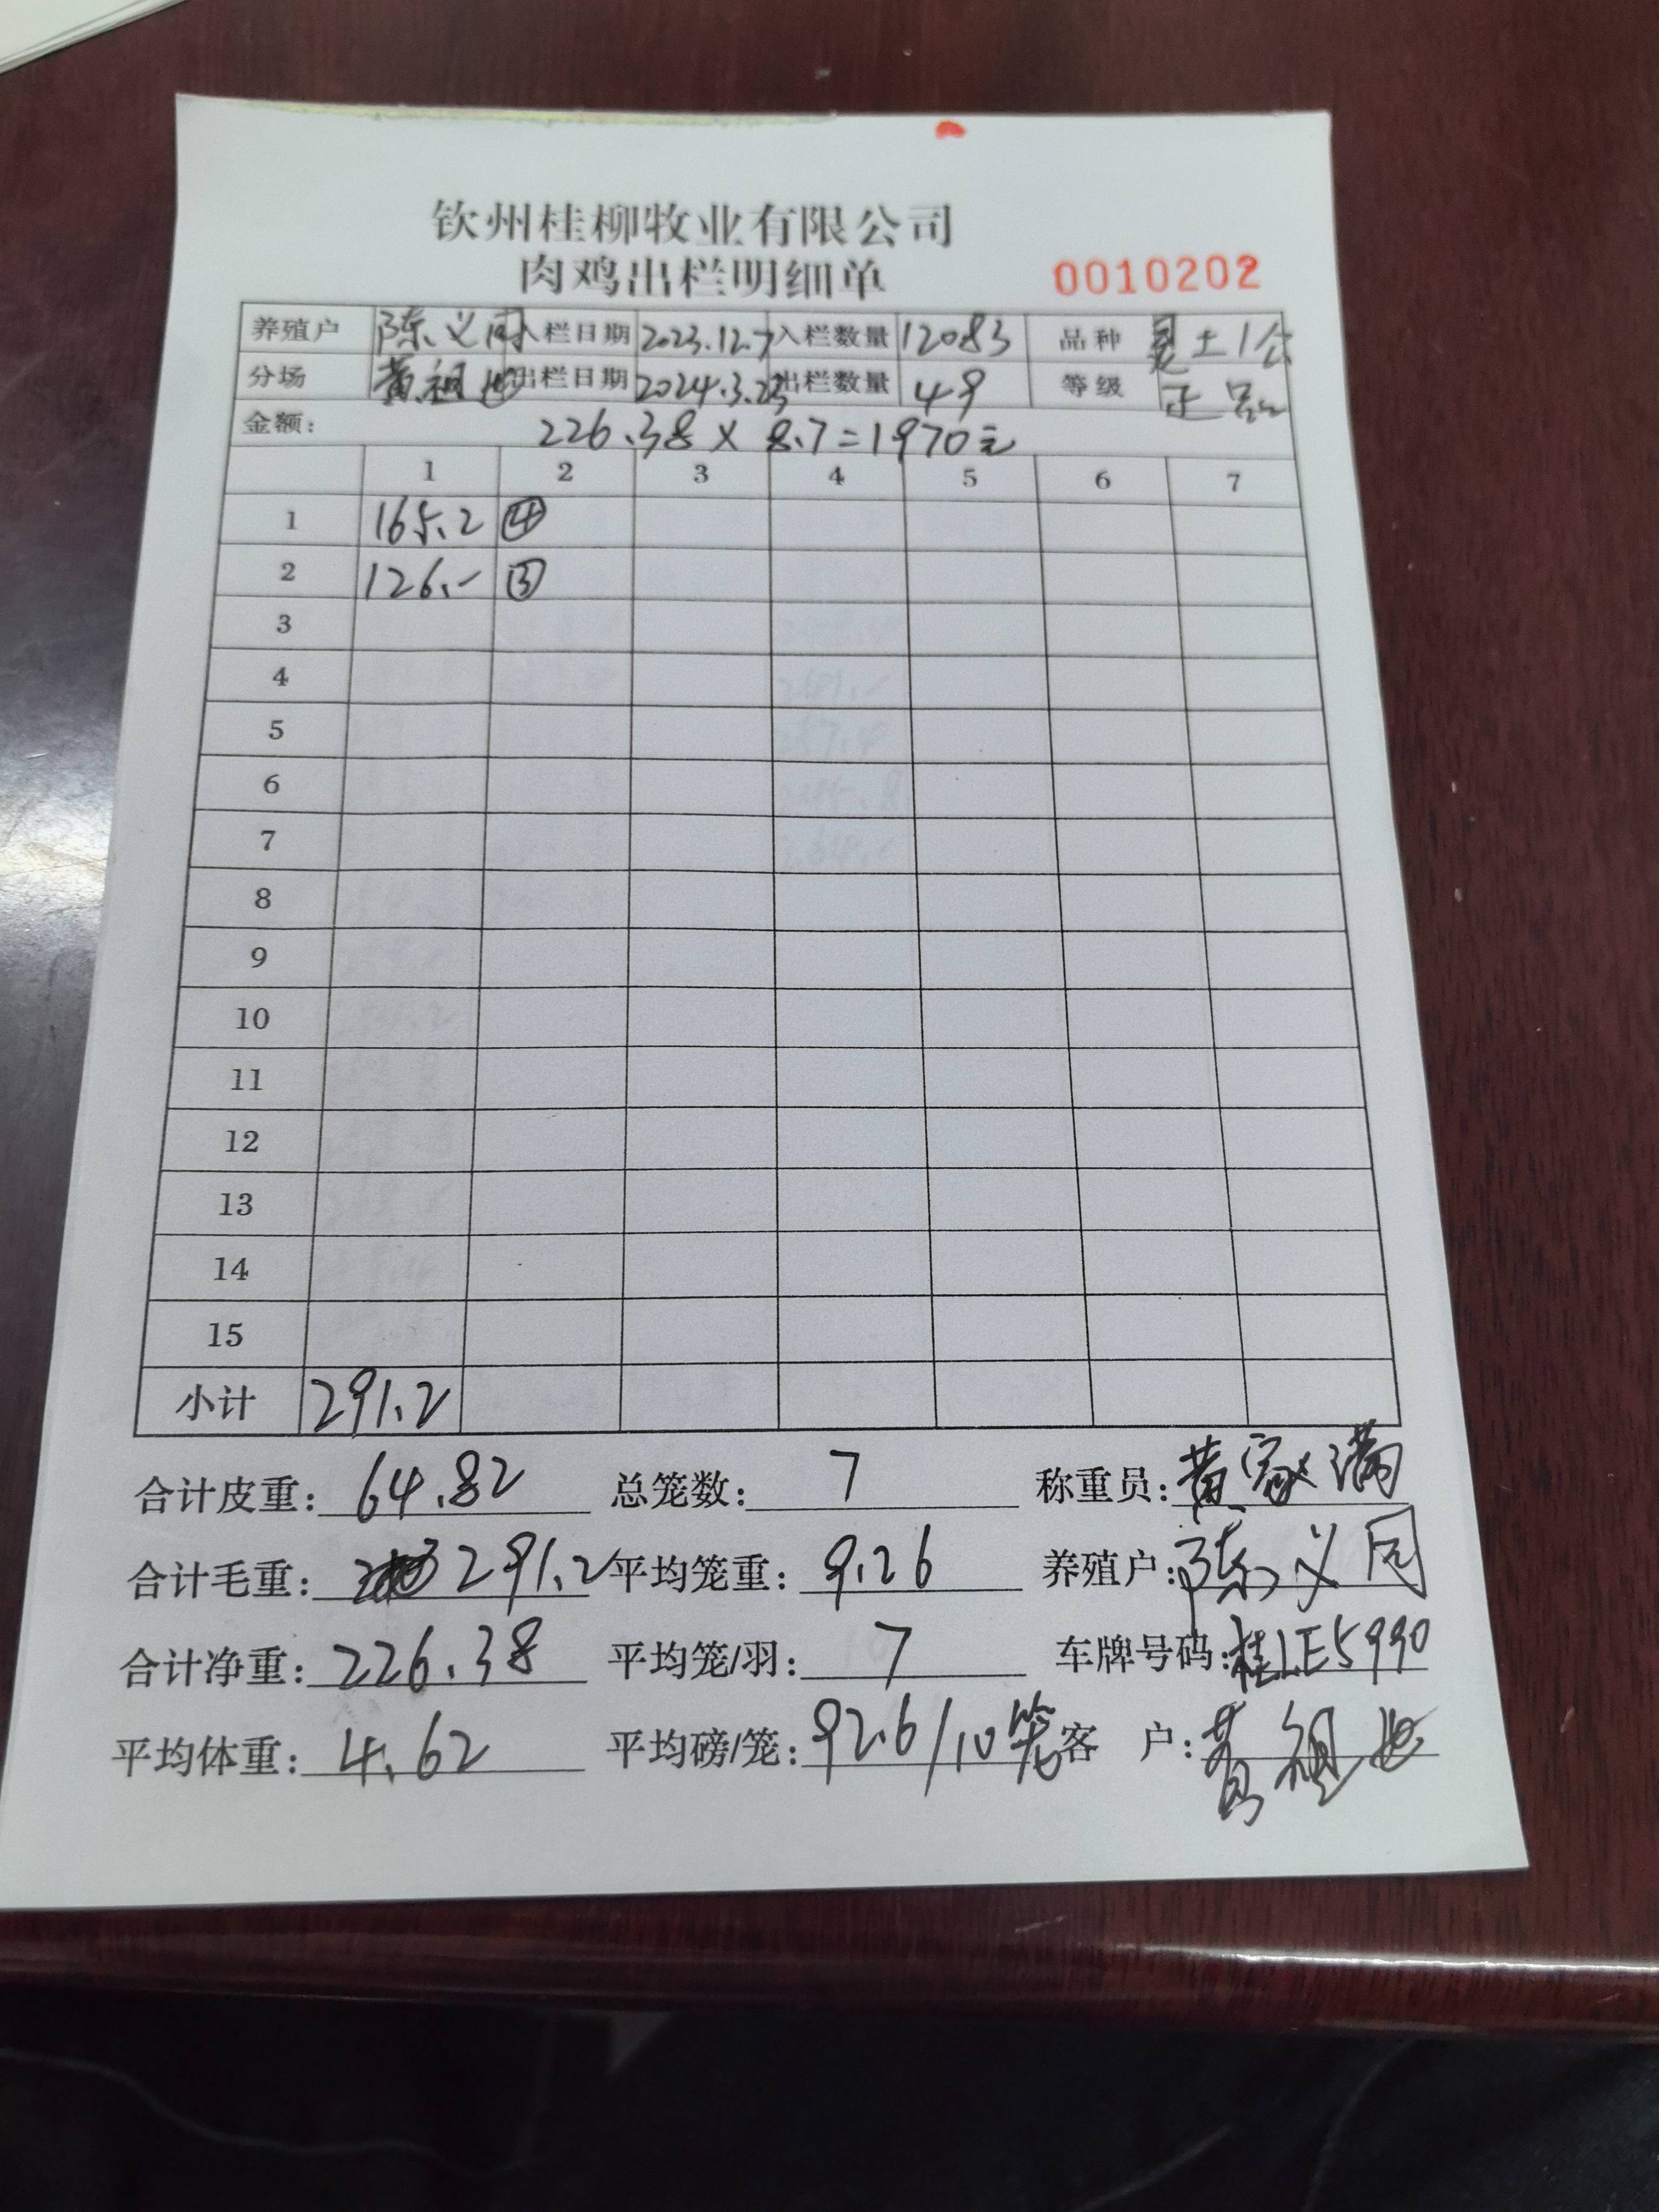 钦州桂柳牧业有限公司
肉鸡出栏明细单 0010202
养殖户 陈义同 入栏日期 2023.12.7 入栏数量 12083 品种 土1公
分场 黄祖 出栏日期 2024.3.23 出栏数量 49 等级 正品
金额: 226.38 × 8.7=1970元
1 2 3 4 5 6 7
1 165.2 ④
2 126.- ③
3
4
5
6
7
8
9
10
11
12
13
14
15
小计 291.2
合计皮重: 64.82 总笼数: 7 称重员: 黄家满
合计毛重: 291.2 平均笼重: 9.26 养殖户: 陈义同
合计净重: 226.38 平均笼/羽: 7 车牌号码: 桂LE5990
平均体重: 4.62 平均磅/笼: 92.6/10笼 客 户: 黄祖